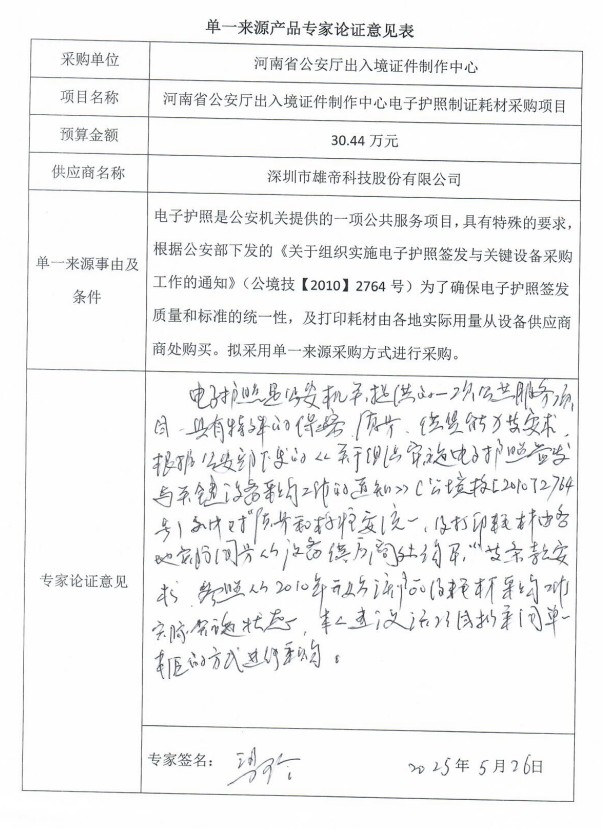 单一来源产品专家论证意见表
采购单位
河南省公安厅出入境证件制作中心
项目名称
河南省公安厅出入境证件制作中心电子护照制证耗材采购项目
预算金额
30.44 万元
供应商名称
深圳市雄帝科技股份有限公司
单一来源事由及
条件
电子护照是公安机关提供的一项公共服务项目,具有特殊的要求,
根据公安部下发的《关于组织实施电子护照签发与关键设备采购
工作的通知》(公境技【2010】2764 号)为了确保电子护照签发
质量和标准的统一性,及打印耗材由各地实际用量从设备供应商
商处购买。拟采用单一来源采购方式进行采购。
专家论证意见
电子护照是公安机关提供的一项公共服务项
目,具有特殊的保密、质量、供货能力等要求,
根据公安部下发的《关于组织实施电子护照签发
与关键设备采购工作的通知》(公境技[2010]2764
号)文中对"质量和标准要统一,及打印耗材由各
地实际用量从设备供应商处购买"
从2010年
实际实施状态,本人建议该项目拟采用单一
来源的方式进行采购。
专家签名:
2025年5月26日